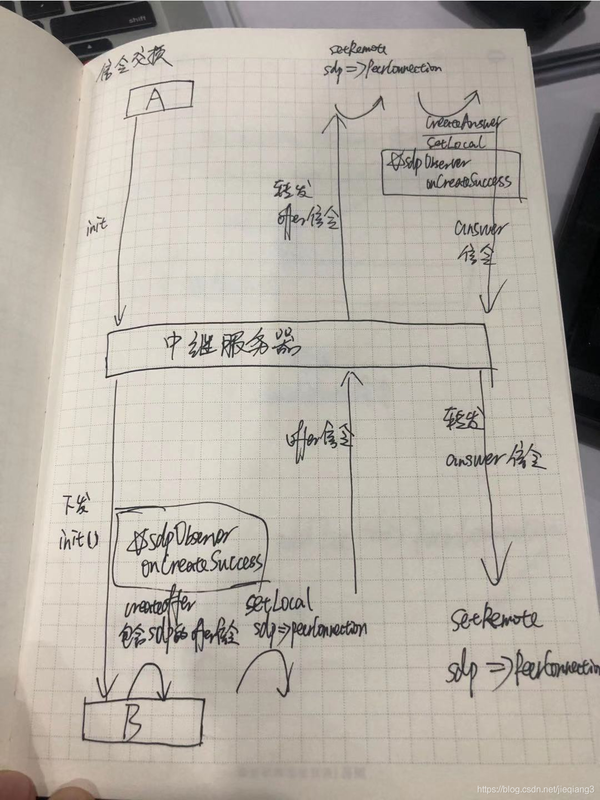 信令交换
A
setRemote
sdp => PeerConnection
createAnswer
setLocal
sdpObserver
onCreateSuccess
init
转发
offer信令
answer
信令
中继服务器
offer信令
转发
answer信令
下发
init()
sdpObserver
onCreateSuccess
createoffer
包含sdp的offer信令
setLocal
sdp => peerConnection
B
setRemote
sdp => PeerConnection
https://blog.csdn.net/jieqiang3